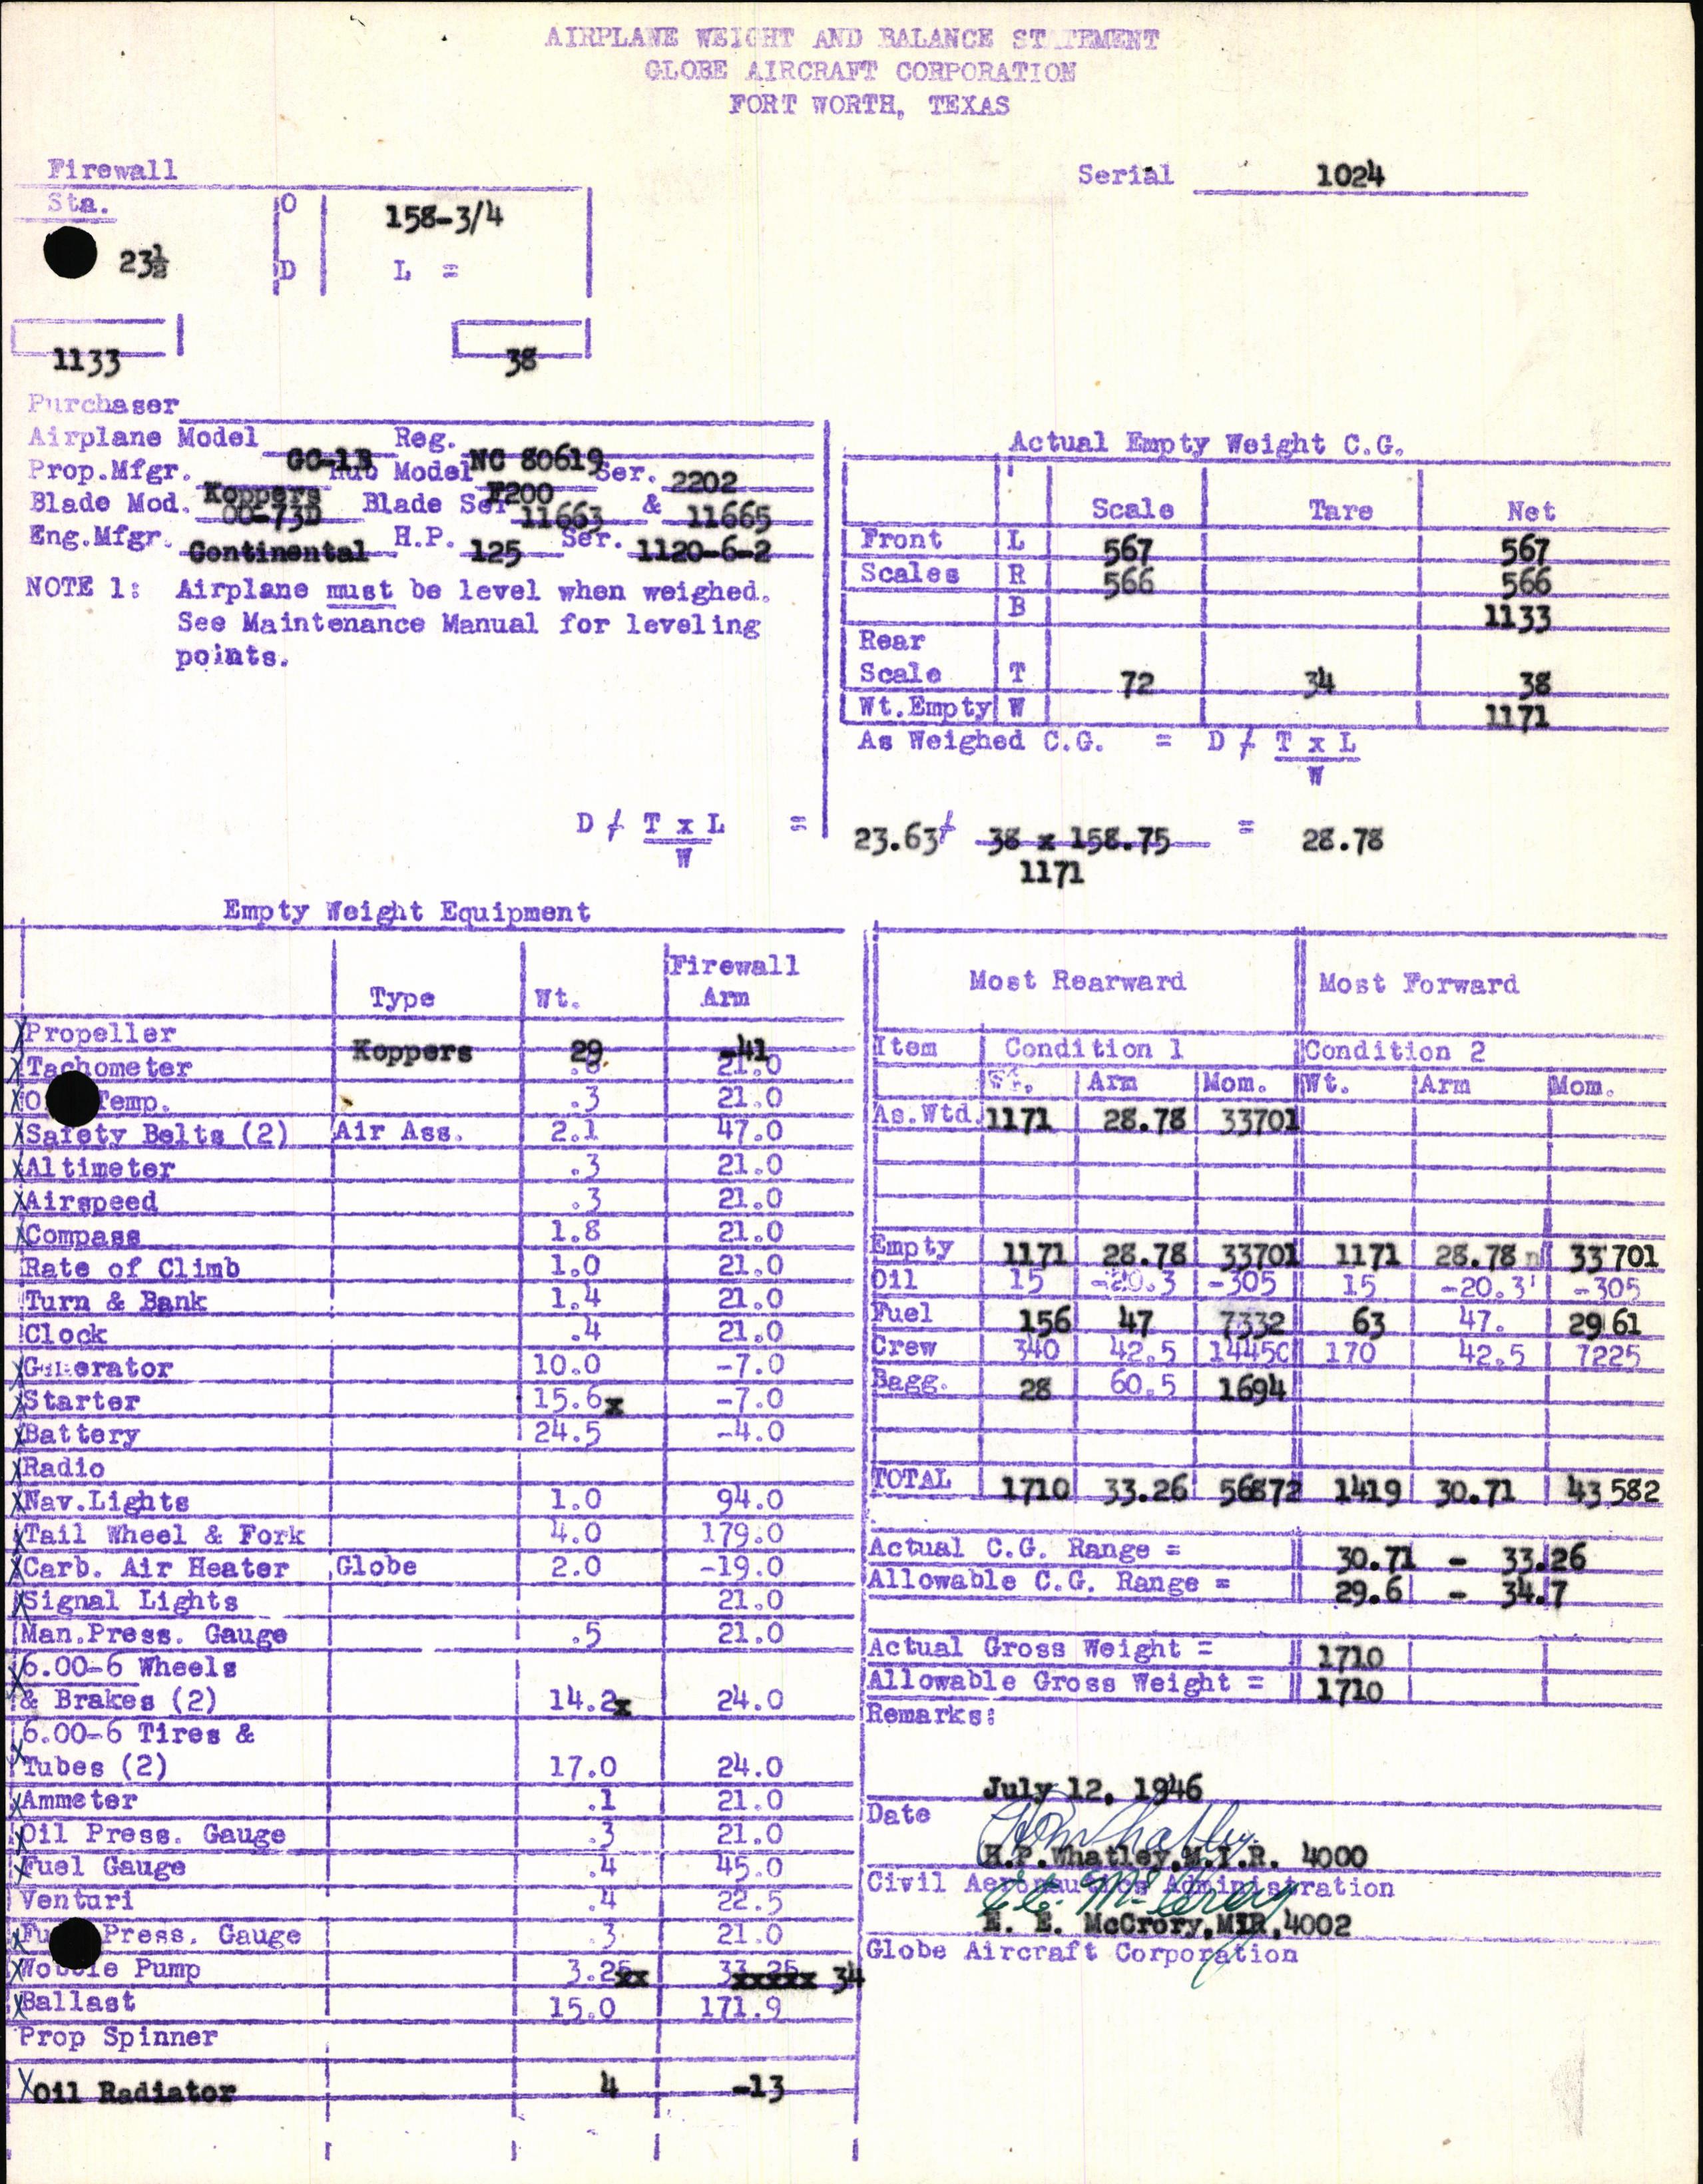 AIRPLANE WEIGHT AND BALANCE STATEMENT
GLOBE AIRCRAFT CORPORATION
FORT WORTH, TEXAS
Firewall
Serial 1024
Sta. O 158-3/4
23½ D L =
1133 38
Purchaser
Airplane Model GC-1B Reg. NC 80619
Prop.Mfgr. Koppers Hub Model F200 Ser. 2202
Blade Mod. 00-73D Blade Ser 11663 & 11665
Eng.Mfgr. Continental H.P. 125 Ser. 1120-6-2
NOTE 1: Airplane must be level when weighed.
See Maintenance Manual for leveling
points.
Actual Empty Weight C.G.
Scale Tare Net
Front L 567 567
Scales R 566 566
B 1133
Rear
Scale T 72 34 38
Wt.Empty W 1171
As Weighed C.G. = D ⁄ T x L
W
D ⁄ T x L = 23.63⁄ 38 x 158.75 = 28.78
W 1171
Empty Weight Equipment
Type Wt. Firewall
Arm
X Propeller Koppers 29 -41
X Tachometer 21.0
X Temp. .3 21.0
X Safety Belts (2) Air Ass. 2.1 47.0
X Altimeter .3 21.0
X Airspeed .3 21.0
X Compass 1.8 21.0
Rate of Climb 1.0 21.0
Turn & Bank 1.4 21.0
Clock .4 21.0
X Generator 10.0 -7.0
X Starter 15.6x -7.0
X Battery 24.5 -4.0
X Radio
X Nav.Lights 1.0 94.0
X Tail Wheel & Fork 4.0 179.0
X Carb. Air Heater Globe 2.0 -19.0
X Signal Lights 21.0
Man.Press. Gauge .5 21.0
X 6.00-6 Wheels
& Brakes (2) 14.2x 24.0
X 6.00-6 Tires &
Tubes (2) 17.0 24.0
X Ammeter .1 21.0
X Oil Press. Gauge .3 21.0
X Fuel Gauge .4 45.0
Venturi .4 22.5
X Press. Gauge .3 21.0
X Wobble Pump 3.25xx 33.25 xxxxx 34
X Ballast 15.0 171.9
Prop Spinner
X Oil Radiator 4 -13
Most Rearward Most Forward
Item Condition 1 Condition 2
Wt. Arm Mom. Wt. Arm Mom.
As.Wtd. 1171 28.78 33701
Empty 1171 28.78 33701 1171 28.78 33701
Oil 15 -20.3 -305 15 -20.3 -305
Fuel 156 47 7332 63 47. 2961
Crew 340 42.5 14450 170 42.5 7225
Bagg. 28 60.5 1694
TOTAL 1710 33.26 56872 1419 30.71 43582
Actual C.G. Range = 30.71 - 33.26
Allowable C.G. Range = 29.6 - 34.7
Actual Gross Weight = 1710
Allowable Gross Weight = 1710
Remarks:
July 12, 1946
Date
H.P.Whatley,M.I.R. 4000
Civil Aeronautics Administration
E. E. McCrory,MIR,4002
Globe Aircraft Corporation